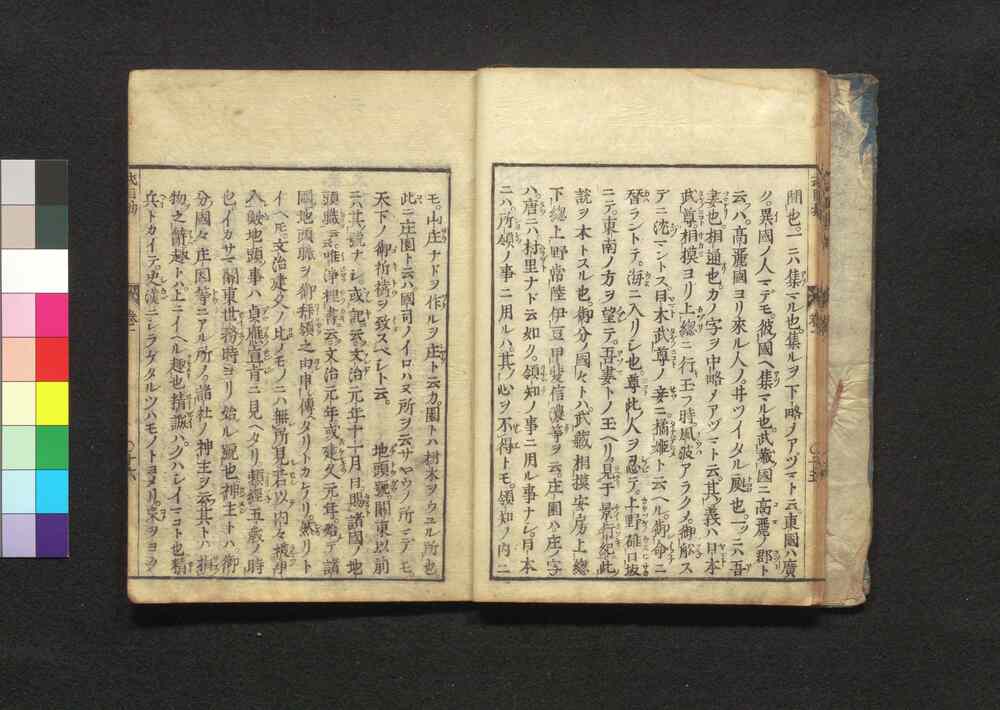 間也。一ニハ集マル也。集ルヲ下略ノアヅマト云。東國ハ廣
シ。異國ノ人マデモ。彼國ヘ集マル也。武藏國ニ高麗ノ郡ト
云ハ。高麗國ヨリ來ル人ノ。井ツイタル處也。一ツニハ吾
妻也。相通也。カノ字ヲ中略ノアヅマト云。其ノ義ハ日本
武尊。相摸ヨリ上總ニ行玉フ時。風波アラクメ。御舩ス
デニ沈マントス。日本武尊ノ妾ニ橘姫ト云ヘル。御命ニ
替ラントテ。海ニ入リシ也。尊此人ヲ忍テ。上野碓日坂
ニテ。東南ノ方ヲ望テ。吾妻トノ玉ヘリ。見于景行紀此
説ヲ本トスル也。御分ノ國々トハ。武藏相摸安房上總
下總上野常陸伊豆甲斐信濃等ヲ云。庄園ハ庄ノ字
ハ。唐ニハ村里ナド云如ク。領知ノ事ニ用ル事ナシ。日本
ニハ。所領ノ事ニ用ルハ。其ノ心ヲ不得トモ。領知ノ内ニ
モ。山庄ナドヲ作ルヲ庄ト云カ。園トハ樹木ヲウユル所也
此ニ庄園ト云ハ國司ノイロハヌ所ヲ云。サヤウノ所ニテモ。
天下ノ御祈禱ヲ致スベシト云。 地頭。號關東以前
ニハ其號ナシ。或記云。文治元年十一月日賜諸國ノ地
頭職云。唯浄裡書云。文治元年或建久元年。始テ諸
國地頭職ヲ御拜領之由申傳タリトカケリ。然リト
イヘモ文治建久ノ比ノモノニハ無所見。若以内々被申
入歟。地頭事ハ貞應宣旨ニ見ヘタリ。頼經五歳ノ時
也。イカサマ關東世務時ヨリ始ル號也。神主トハ御
分國々庄園等ニアル所ノ。諸社ノ神主ヲ云。其トハ指
物之辭趣トハ。上ニイヘル趣也。精誠ハ。クハシイマコト也。精
兵トカイテ。史漢ニシラゲタルツハモノトヨメリ。來ヲヨシ
卷一